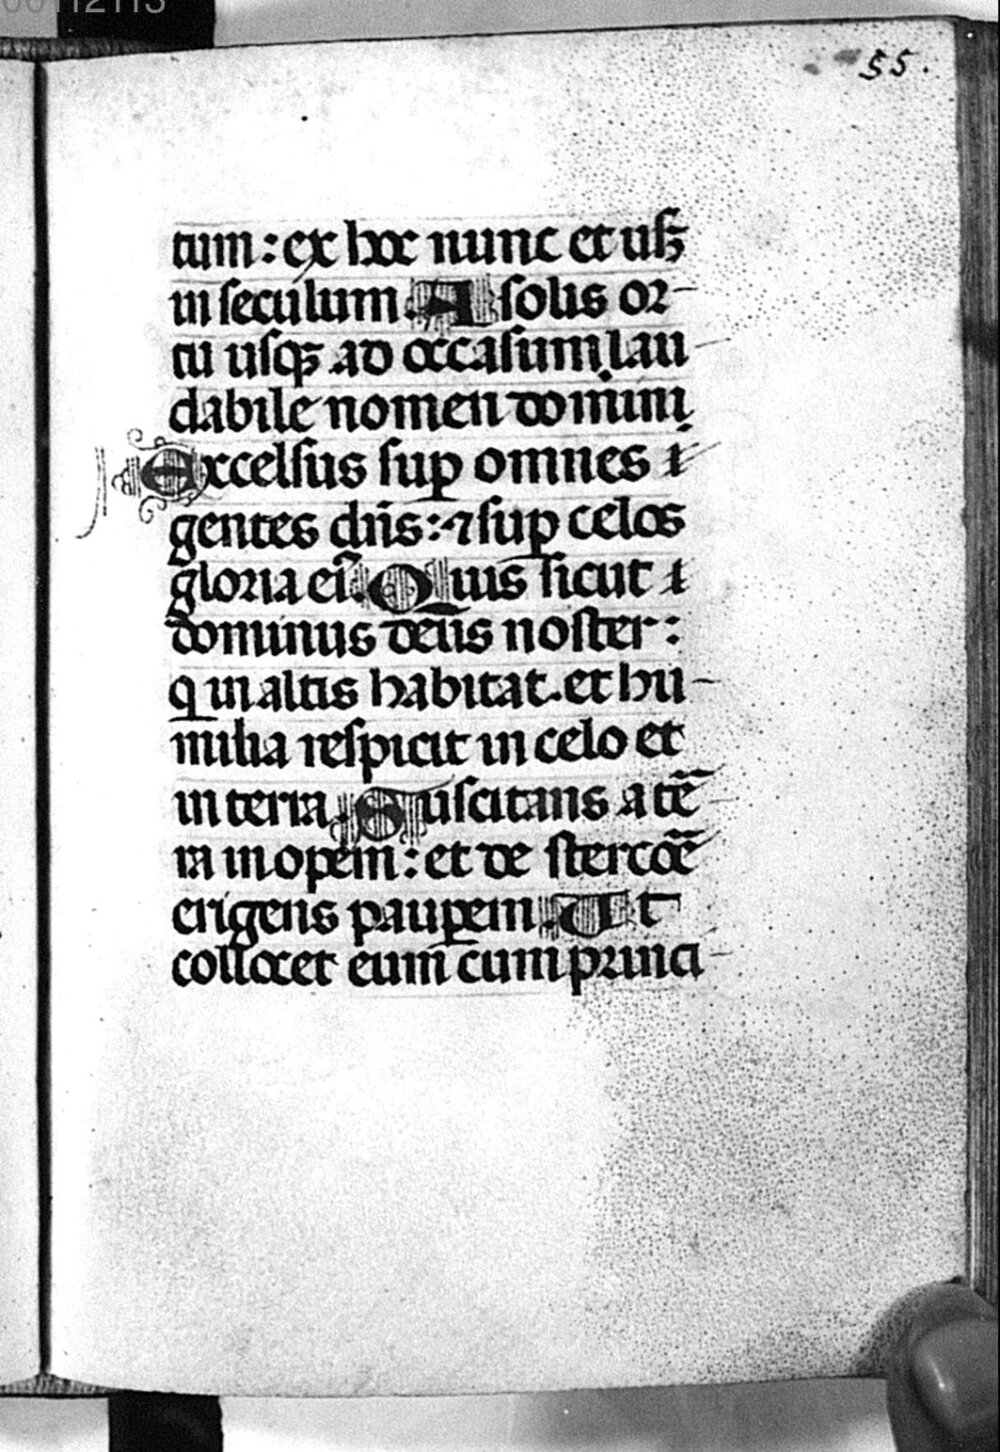 00112113
55.
tum: ex hoc nunc et usꝫ
in seculum. A solis or-
tu usqꝫ ad occasum, lau
dabile nomen domini.
Excelsus suꝑ omnes
gentes dn̄s: ⁊ suꝑ celos
gloria ei᷒. Quis sicut
dominus deus noster:
q in altis habitat. et hu-
milia respicit in celo et
in terra. Suscitans a te᷒r̄
ra inopem: et de stercoē
erigens pauꝑem. Ut
collocet eum cum princi-